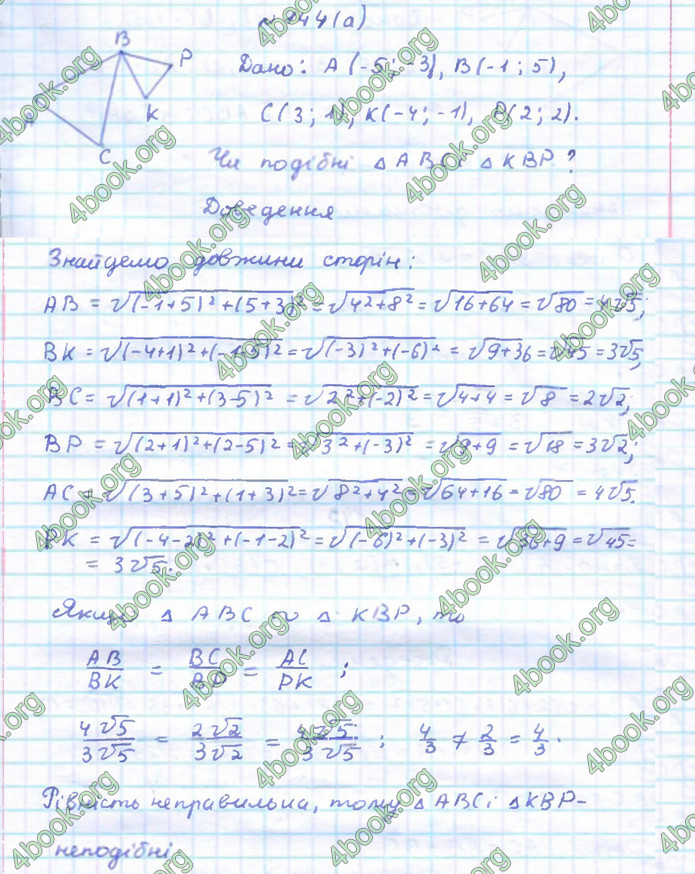 № 244 (а)
B
P
K
C
Дано: A (-5; -3), B(-1; 5),
C(3; 1), K(-4; -1), P(2; 2).
Чи подібні △ABC і △KBP?
Доведення
Знайдемо довжини сторін:
AB = √(-1+5)²+(5+3)² = √4²+8² = √16+64 = √80 = 4√5;
BK = √(-4+1)²+(-1-5)² = √(-3)²+(-6)² = √9+36 = √45 = 3√5;
BC = √(1+1)²+(3-5)² = √2²+(-2)² = √4+4 = √8 = 2√2;
BP = √(2+1)²+(2-5)² = √3²+(-3)² = √9+9 = √18 = 3√2;
AC = √(3+5)²+(1+3)² = √8²+4² = √64+16 = √80 = 4√5.
PK = √(-4-2)²+(-1-2)² = √(-6)²+(-3)² = √36+9 = √45 =
= 3√5.
Якщо △ABC ∾ △KBP, то
AB/BK = BC/BP = AC/PK;
4√5/3√5 = 2√2/3√2 = 4√5/3√5; 4/3 ≠ 2/3 = 4/3.
Рівність неправильна, тому △ABC і △KBP -
неподібні
4book.org